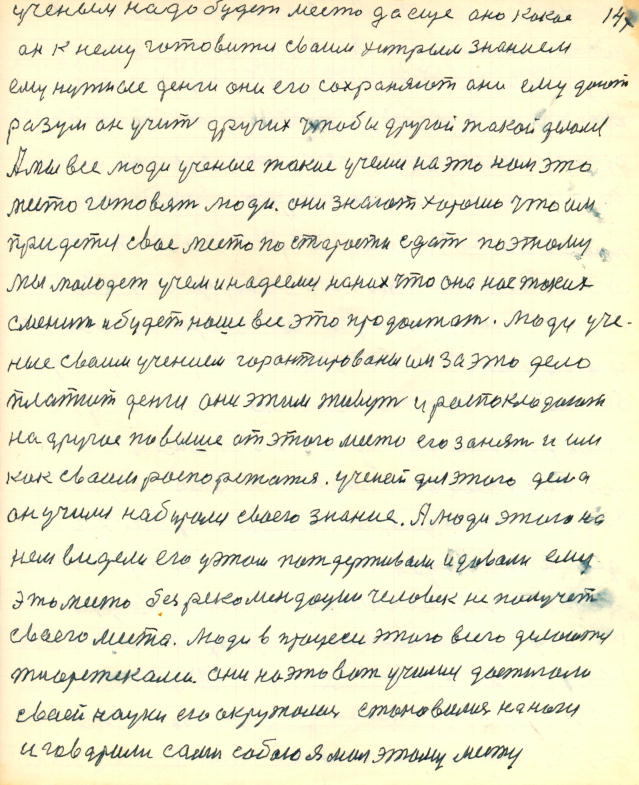 ученым надо будет место да еще оно какое 147
он к нему готовится своим хитрым знанием
ему нужные денги они его сохраняют они ему дают
разум он учит других чтобы другой такой делал
А мы все люди ученые такие учены на это ном это
место готовят люди. они знают хорошо что им
придется свое место по старости сдать поэтому
мы молодеж учем и надеемся на них что она нас таких
сменит и будет наше все это продолжат. Люди уче-
ные своим учением гарантированы им за это дело
платют денги они этим живут и распокладают
на другое повыше от этого место его занят и им
как своим распорежатся. ученый для этого дела
он училися набирался своего знание. А люди этого на
нем видели его у этом потдерживали и довали ему
это место без рекомендации человек не получет
своего места. Люди в процеси этого всего делаются
тиоретеками. они на это вот училися достигали
своей науки его окружалися становилися на ноги
и говорили сами собою я мол этому месту